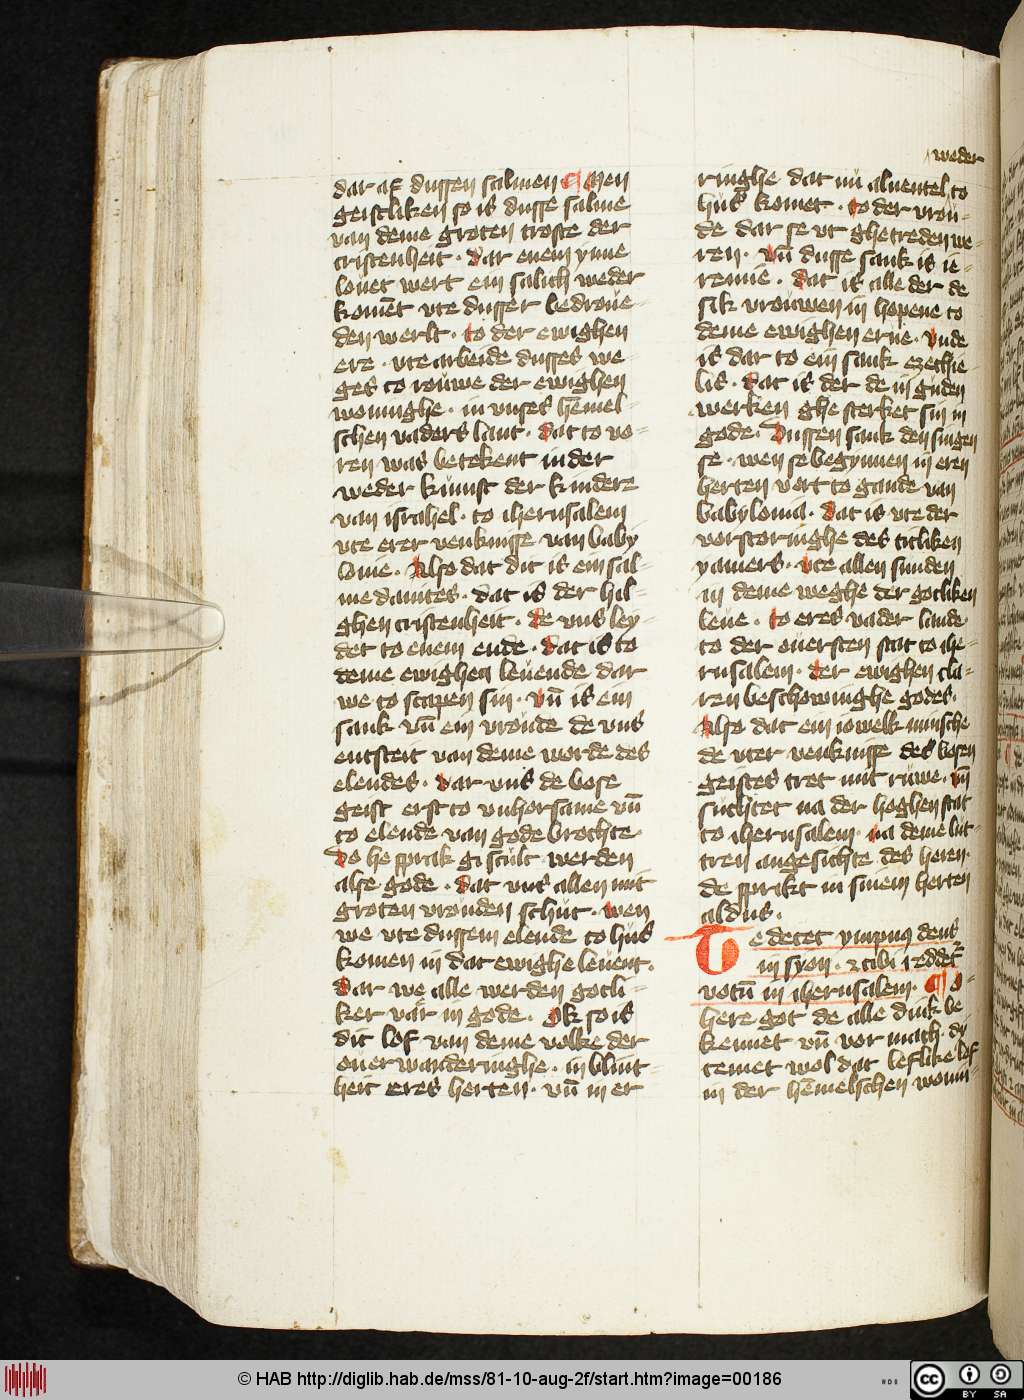 dar af dussen salmen ¶ Men
geistliken so is dusse salme
van deme groten troste der
cristenheit · dar enem ynne
louet wert ein salich weder
komēt vte dusser bedroue-
den werlt · to der ewighen
ere · vte arbeide dusses we-
ges to rouwe der ewighen
woninghe · in vnses hemel-
schen vaders lant · dat to vo-
ren was betekent in der
weder kumst der kindere
van israhel · to iherusalem
vte erer venknisse van baby
lonie · Also dat dit is ein sal-
me dauites · dat is der hil-
ghen cristenheit · de vns ley-
det to enem ende · dat is to
deme ewighen leuende dar
we to scapen sin · vn̄ is ein
sank vn̄ ein vroude de vns
entsteit van deme worde des
elendes · dar vns de bose
geist erst to vnhorsame vn̄
to elende van gode brochte
Do he sprak gi scult werden
alse gode · dat vns allen mit
groten vrouden schut · wen
we vte dussem elende to hus
komen in dat ewighe leuent ·
dar we alle werden gotli-
ker var in gode · Ok so is
dit lof van deme volke der
ouerwanderinghe · in blint-
heit eres herten · vn̄ in er
weder
ringhe dat nu aluentel to
hus komet · to der vrou-
de dar se vt ghetreden we-
ren · vn̄ dusse sank is ie-
remie · dat is alle der de
sik vrouwen in hopene to
deme ewighen erue · vnde
is dar to ein sank ezechie
lis · dat is der de in guden
werken ghesterket sin in
gode · Dussen sank den singen
se · wen se begynnen in eren
herten vort to gande van
babylonia · dat is vte der
vorstoringhe des titliken
yamers · vte allen sunden
in deme weghe der gotliken
leue · to eres vader lande
to der ouersten stat to ihe-
rusalem · der ewighen cla-
ren beschowinghe godes ·
Also dat ein iowelk minsche
de vter venknisse des bosen
geistes tret mit ruwe · vn̄
suchtet na der hoghen stat
to iherusalem · na deme lut-
tren angesichte des heren ·
de sprikt in sinem herten
aldus ·
Te decet ympnꝰ deus
in syon · ⁊ tibi reddet᷑
votū in iherusalem · ¶ O
here got de alle dink be
kennet vn̄ vor mach · dy
temet wol dat leflike lof
in der hemelschen wonin-
© HAB http://diglib.hab.de/mss/81-10-aug-2f/start.htm?image=00186
HAB
cc
BY SA